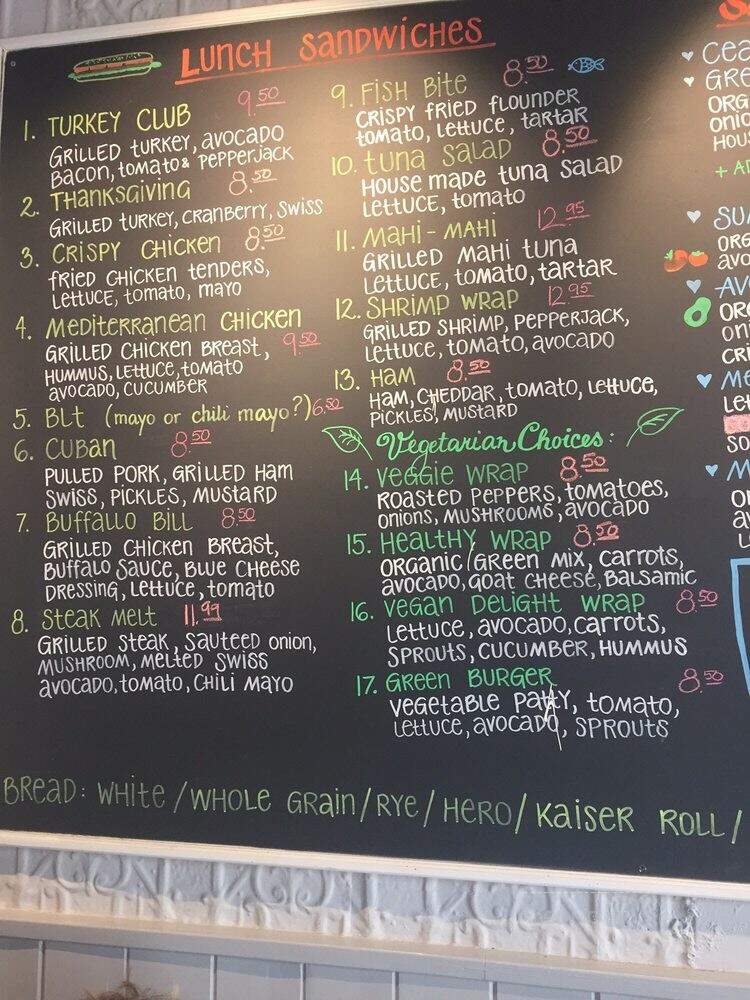 Lunch Sandwiches
1. Turkey Club 9.50
Grilled turkey, avocado
Bacon, tomato & pepperjack
2. Thanksgiving 8.50
Grilled turkey, cranberry, swiss
3. Crispy Chicken 8.50
fried chicken tenders,
lettuce, tomato, mayo
4. Mediterranean Chicken
Grilled chicken breast, 9.50
hummus, lettuce, tomato
avocado, cucumber
5. BLT (mayo or chili mayo?) 6.50
6. Cuban 8.50
Pulled pork, grilled ham
swiss, pickles, mustard
7. Buffallo Bill 8.50
Grilled chicken breast,
Buffalo sauce, blue cheese
dressing, lettuce, tomato
8. Steak Melt 11.99
Grilled steak, sauteed onion,
mushroom, melted swiss
avocado, tomato, chili mayo
9. Fish Bite 8.50
Crispy fried flounder
tomato, lettuce, tartar
10. Tuna Salad 8.50
House made tuna salad
lettuce, tomato
11. Mahi-Mahi 12.95
Grilled mahi tuna
lettuce, tomato, tartar
12. Shrimp Wrap 12.95
Grilled shrimp, pepperjack,
lettuce, tomato, avocado
13. Ham 8.50
Ham, cheddar, tomato, lettuce,
pickles, mustard
Vegetarian Choices:
14. Veggie Wrap 8.50
Roasted peppers, tomatoes,
onions, mushrooms, avocado
15. Healthy Wrap 8.50
Organic Green mix, carrots,
avocado, goat cheese, balsamic
16. Vegan Delight Wrap 8.50
Lettuce, avocado, carrots,
sprouts, cucumber, hummus
17. Green Burger 8.50
Vegetable patty, tomato,
lettuce, avocado, sprouts
Bread: White / Whole Grain / Rye / Hero / Kaiser Roll /